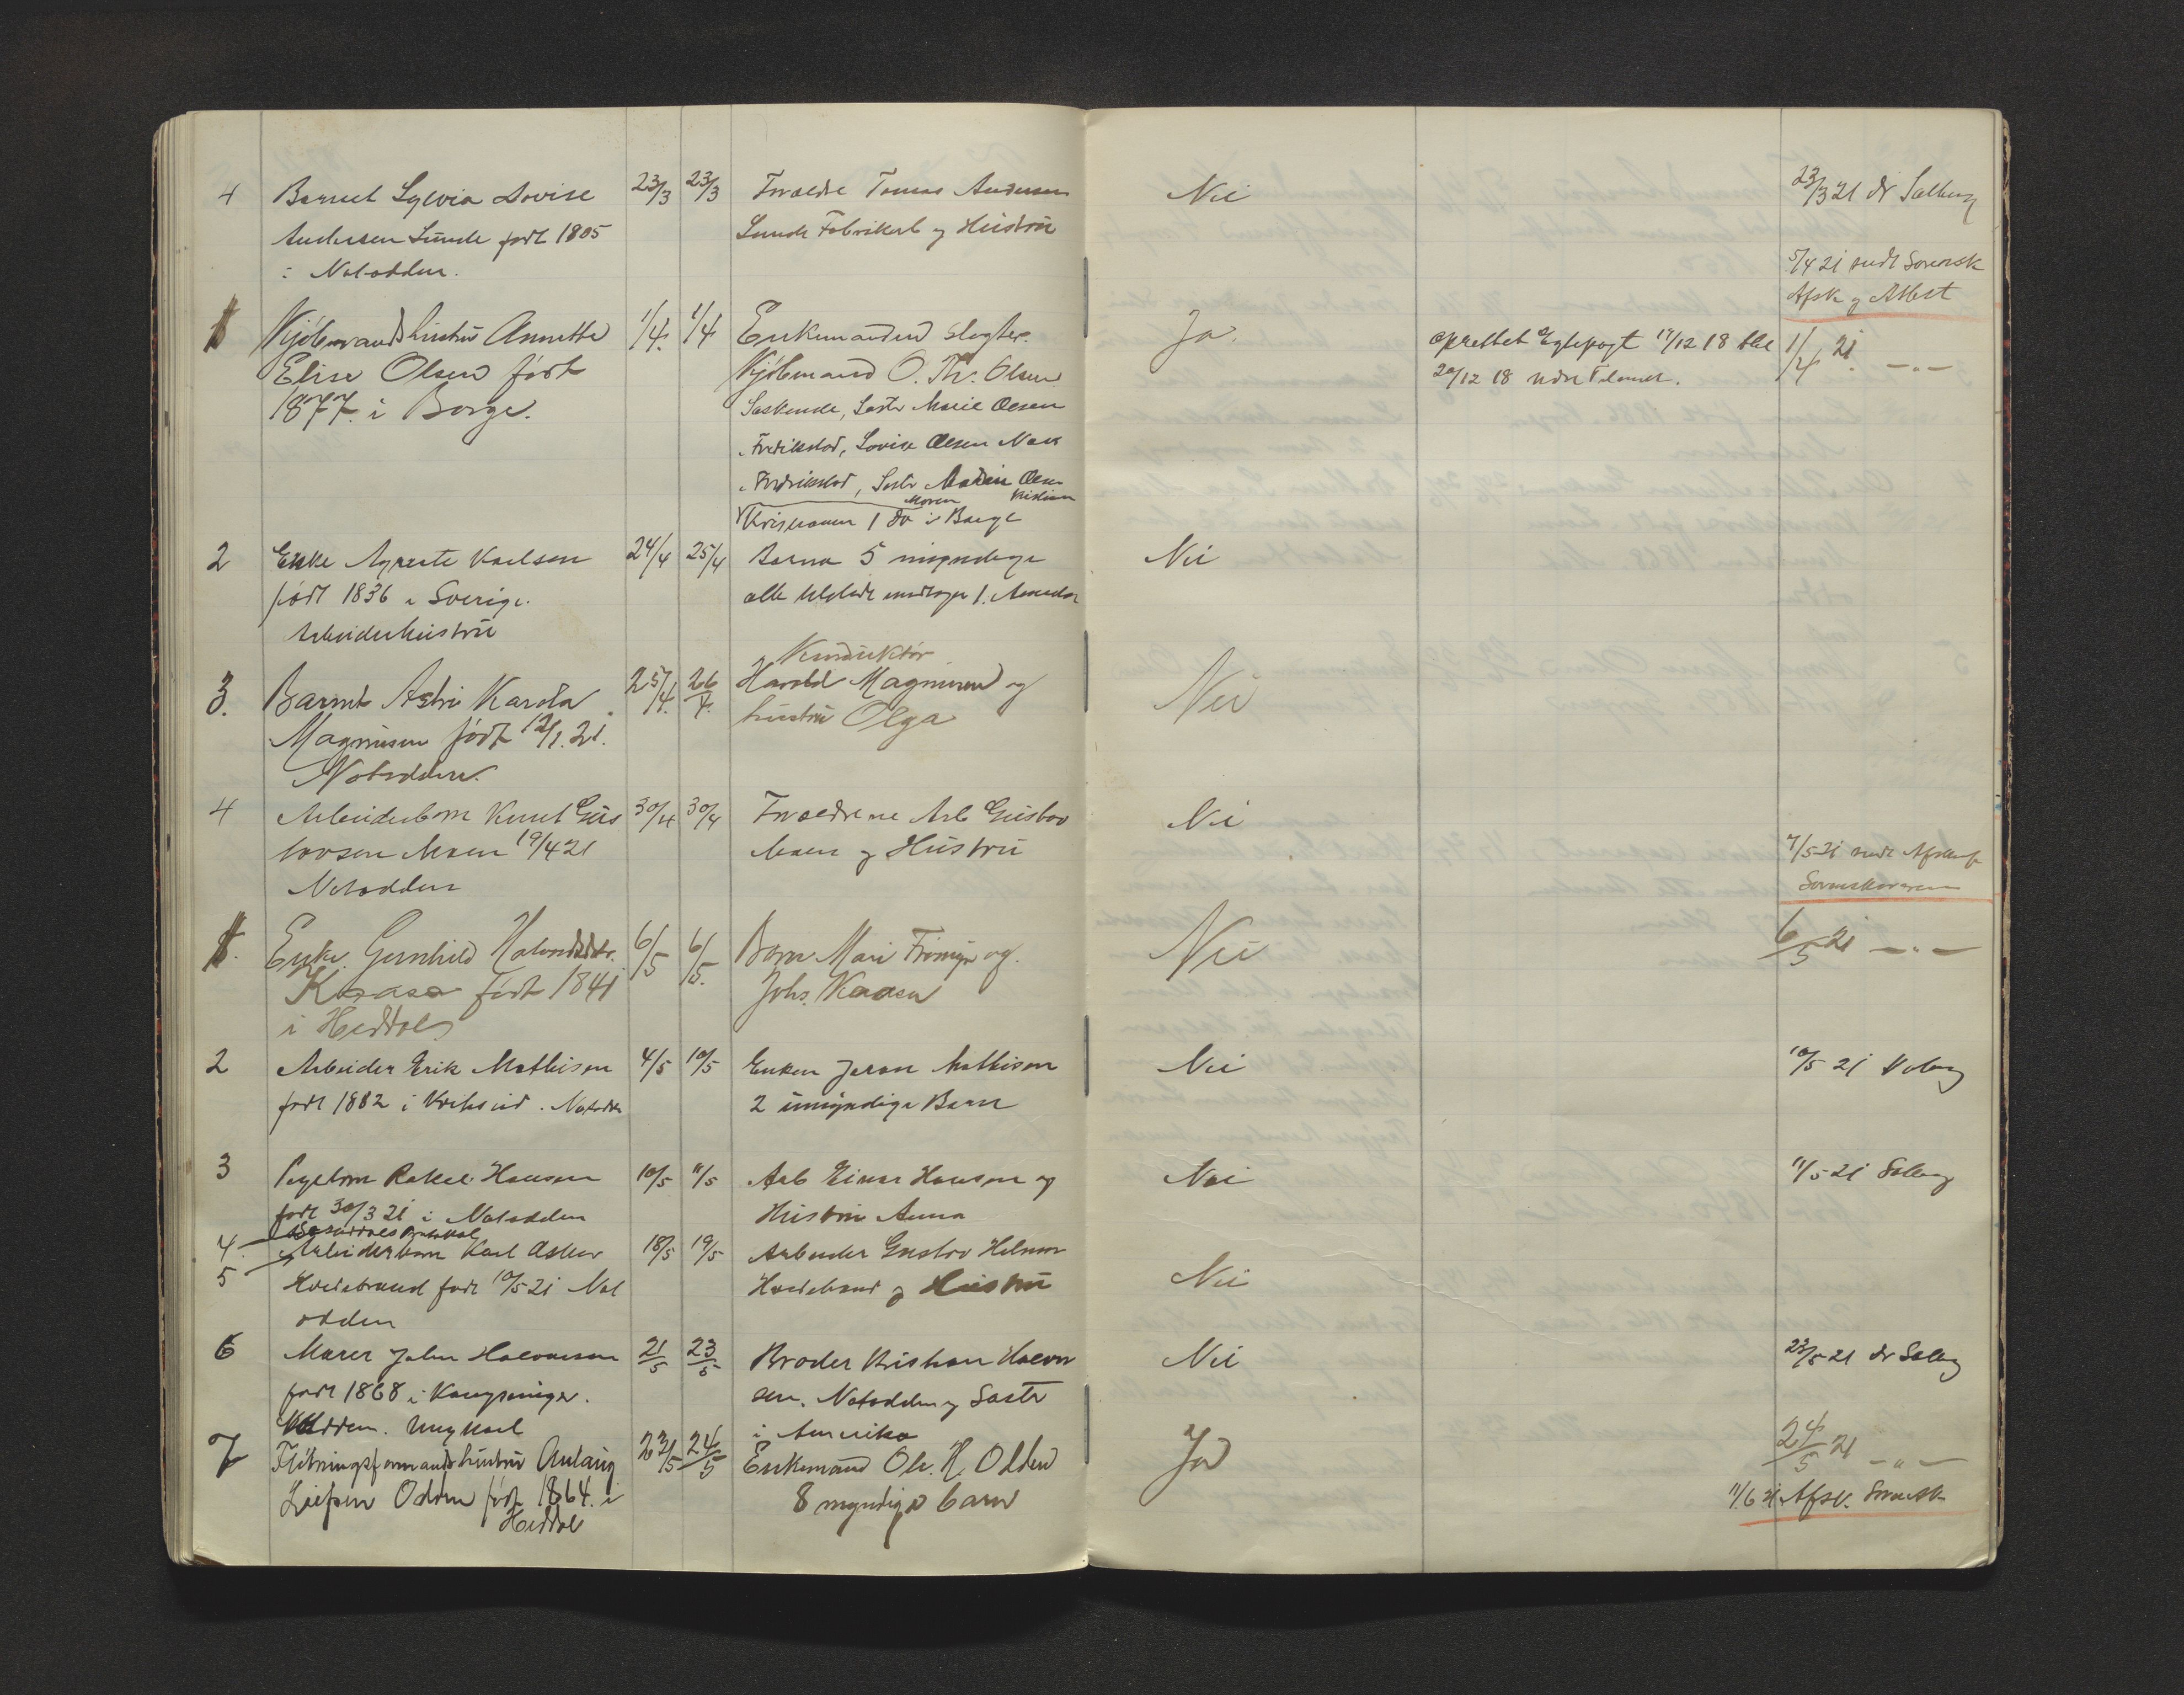 4 Barnet Sylvia Lovise 23/3 23/3 Forældre Tomas Andersen Nei 23/3 21 dr Solberg
Andersen Lunde født 1905 Lunde Fabrikarb og Hustru
i Notodden. 5/4 21 sendt Sorensk
Afsk og Attest
1 Kjöbmandshustru Annette 1/4. 1/4 Enkemanden slagter. Ja. oprettet Egtepagt 17/12 18 1/4 21. -"-
Elise Olsen født Kjöbmand O. Th. Olsen 20/12 18 nedre Telemark.
1877 i Borge. Søskende, Søster Marie Olsen
Fredrikstad, Lovise Olsen Næs
Fredrikstad, Søster Olsen
Moren Kristiania
Kristiania 1 do i Borge
2 Enke Agnete Karlsen 24/4 25/4 Barna 5 myndige Nei
født 1836 i Sverige. alle
Arbeiderhustru
Konduktör
3. Barnet Astri Karola 25/4. 26/4. Harald Magnusen og Nei
Magnusen född 12/1. 21. hustru Olga
Notodden.
4 Arbeiderbarn Knut Gus 30/4 30/4 Forældrene Arb Gustav Nei
tavsen Moen 19/4 21 Moen og Hustru
Notodden 7/5 21 sendt Afskrift
Sorenskriveren
1. Enke. Gunhild Halvorsdtr. 6/5 6/5. Barn Mari og Nei 6/5 21 -"-
Kaasa født 1841 Johs. Kaasa
i Heddal
2 Arbeider Erik Mathisen 4/5 10/5 Enken Mathisen Nei 10/5 21 Solberg
født 1882 i . Notodden 2 umyndige Barn
3 Pigebarn Rakel Hansen 10/5 11/5 Arb Einar Hansen og Nei 11/5 21 Solberg
født 30/3 21 i Notodden Hustru Anna
4.
5 Arbeiderbarn Karl Asker 18/5 19/5 Arbeider Gustav Hilmar Nei
Hildebrand født 10/5 21 Not Hildebrand og Hustru
odden
6 Murer Johan Halvorsen 21/5 23/5 Broder Kristian Halvor Nei 23/5 21 dr Solberg
født 1868 i Kongsvinger. sen. Notodden og Søster
Notodden. Ungkarl i Amerika
7 Flötningsformandshustru Aslaug 23/5 24/5 Enkemand Ole. H. Odden Ja 24/5 21 -"-
Leifsen Odden född 1864. i 8 myndige barn 11/6 21 Afsk. Sorensk
Heddal